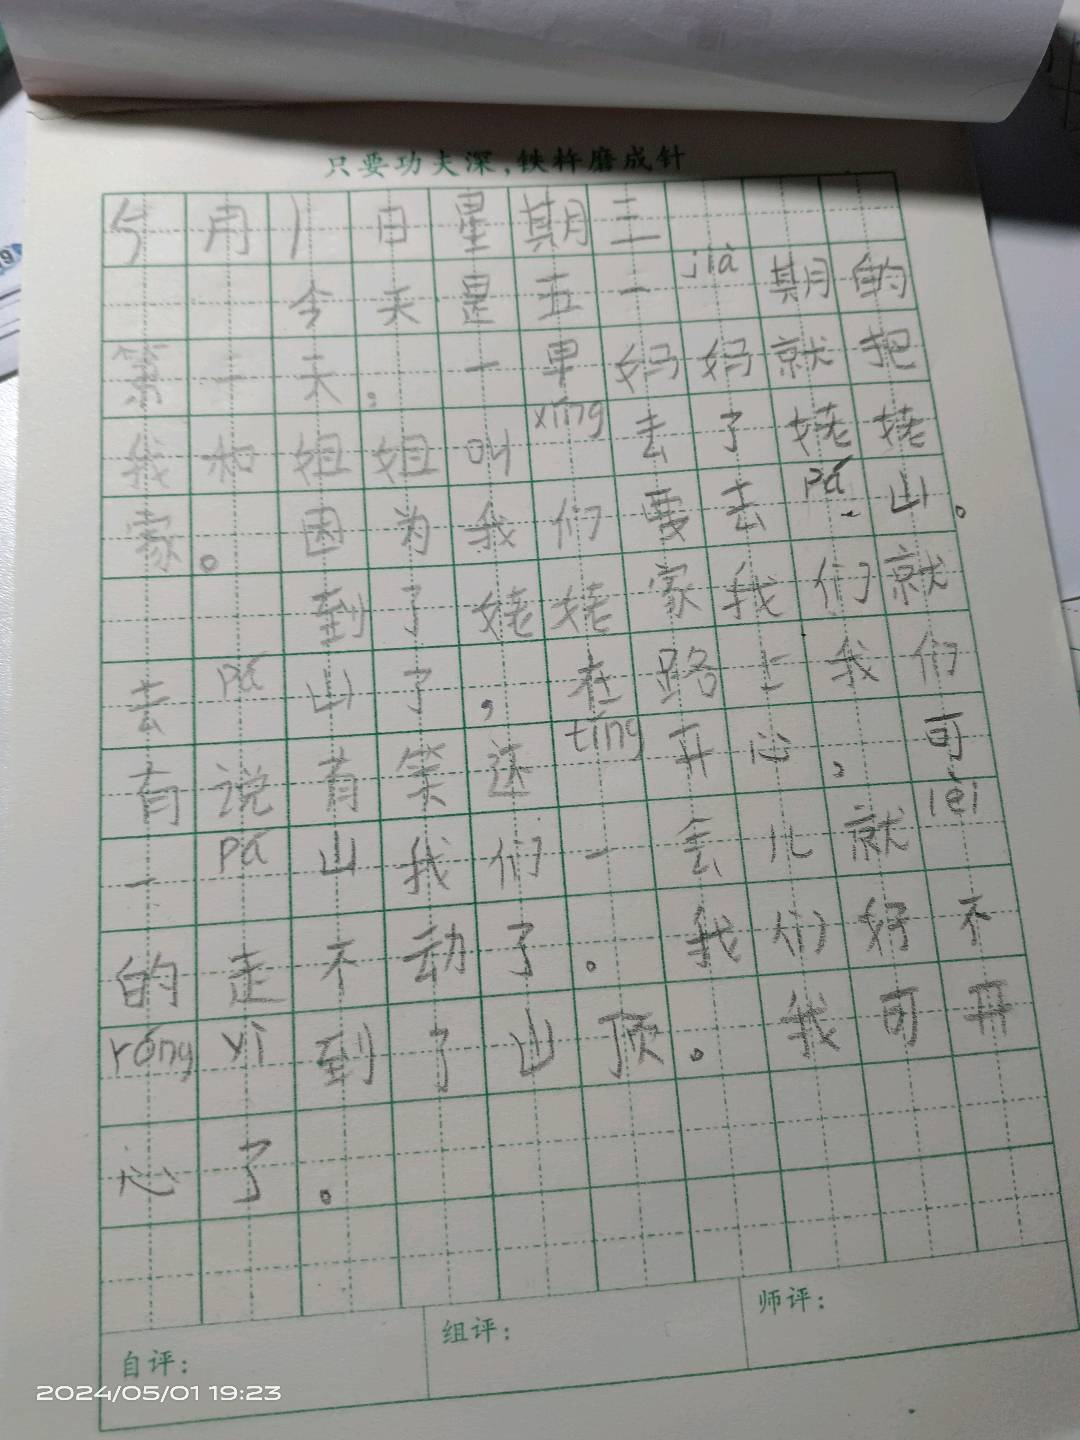 只要功夫深,铁杵磨成针
5月1日星期三
今天是五一jià期的
第一天。一早妈妈就把
我和姐姐叫xǐng去了姥姥
家。因为我们要去pá山。
到了姥姥家我们就
去pá山了,在路上我们
有说有笑还tǐng开心,可
一pá山我们一会儿就lèi
的走不动了。我们好不
róng yì到了山顶。我可开
心了。
自评:
组评:
师评:
2024/05/01 19:23